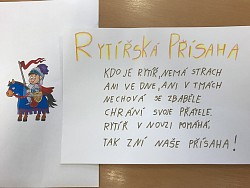 RYTÍŘSKÁ PŘÍSAHA
KDO JE RYTÍŘ, NEMÁ STRACH
ANI VE DNE, ANI V TMÁCH
NECHOVÁ SE ZBABĚLE
CHRÁNÍ SVOJE PŘÁTELE.
RYTÍŘ V NOUZI POMÁHÁ,
TAK ZNÍ NAŠE PŘÍSAHA!